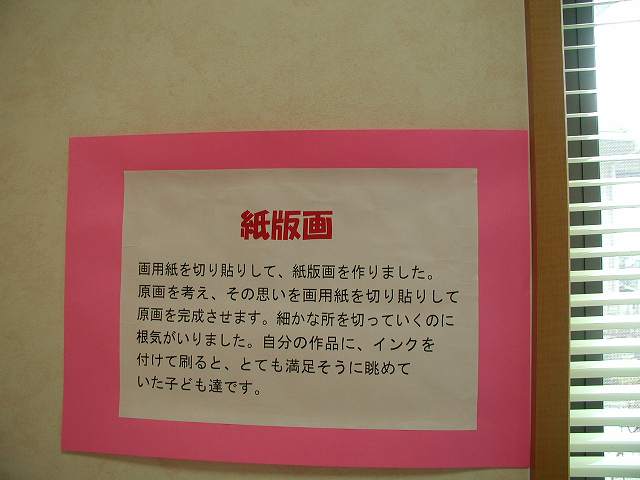 紙版画
画用紙を切り貼りして、紙版画を作りました。
原画を考え、その思いを画用紙を切り貼りして
原画を完成させます。細かな所を切っていくのに
根気がいりました。自分の作品に、インクを
付けて刷ると、とても満足そうに眺めて
いた子ども達です。